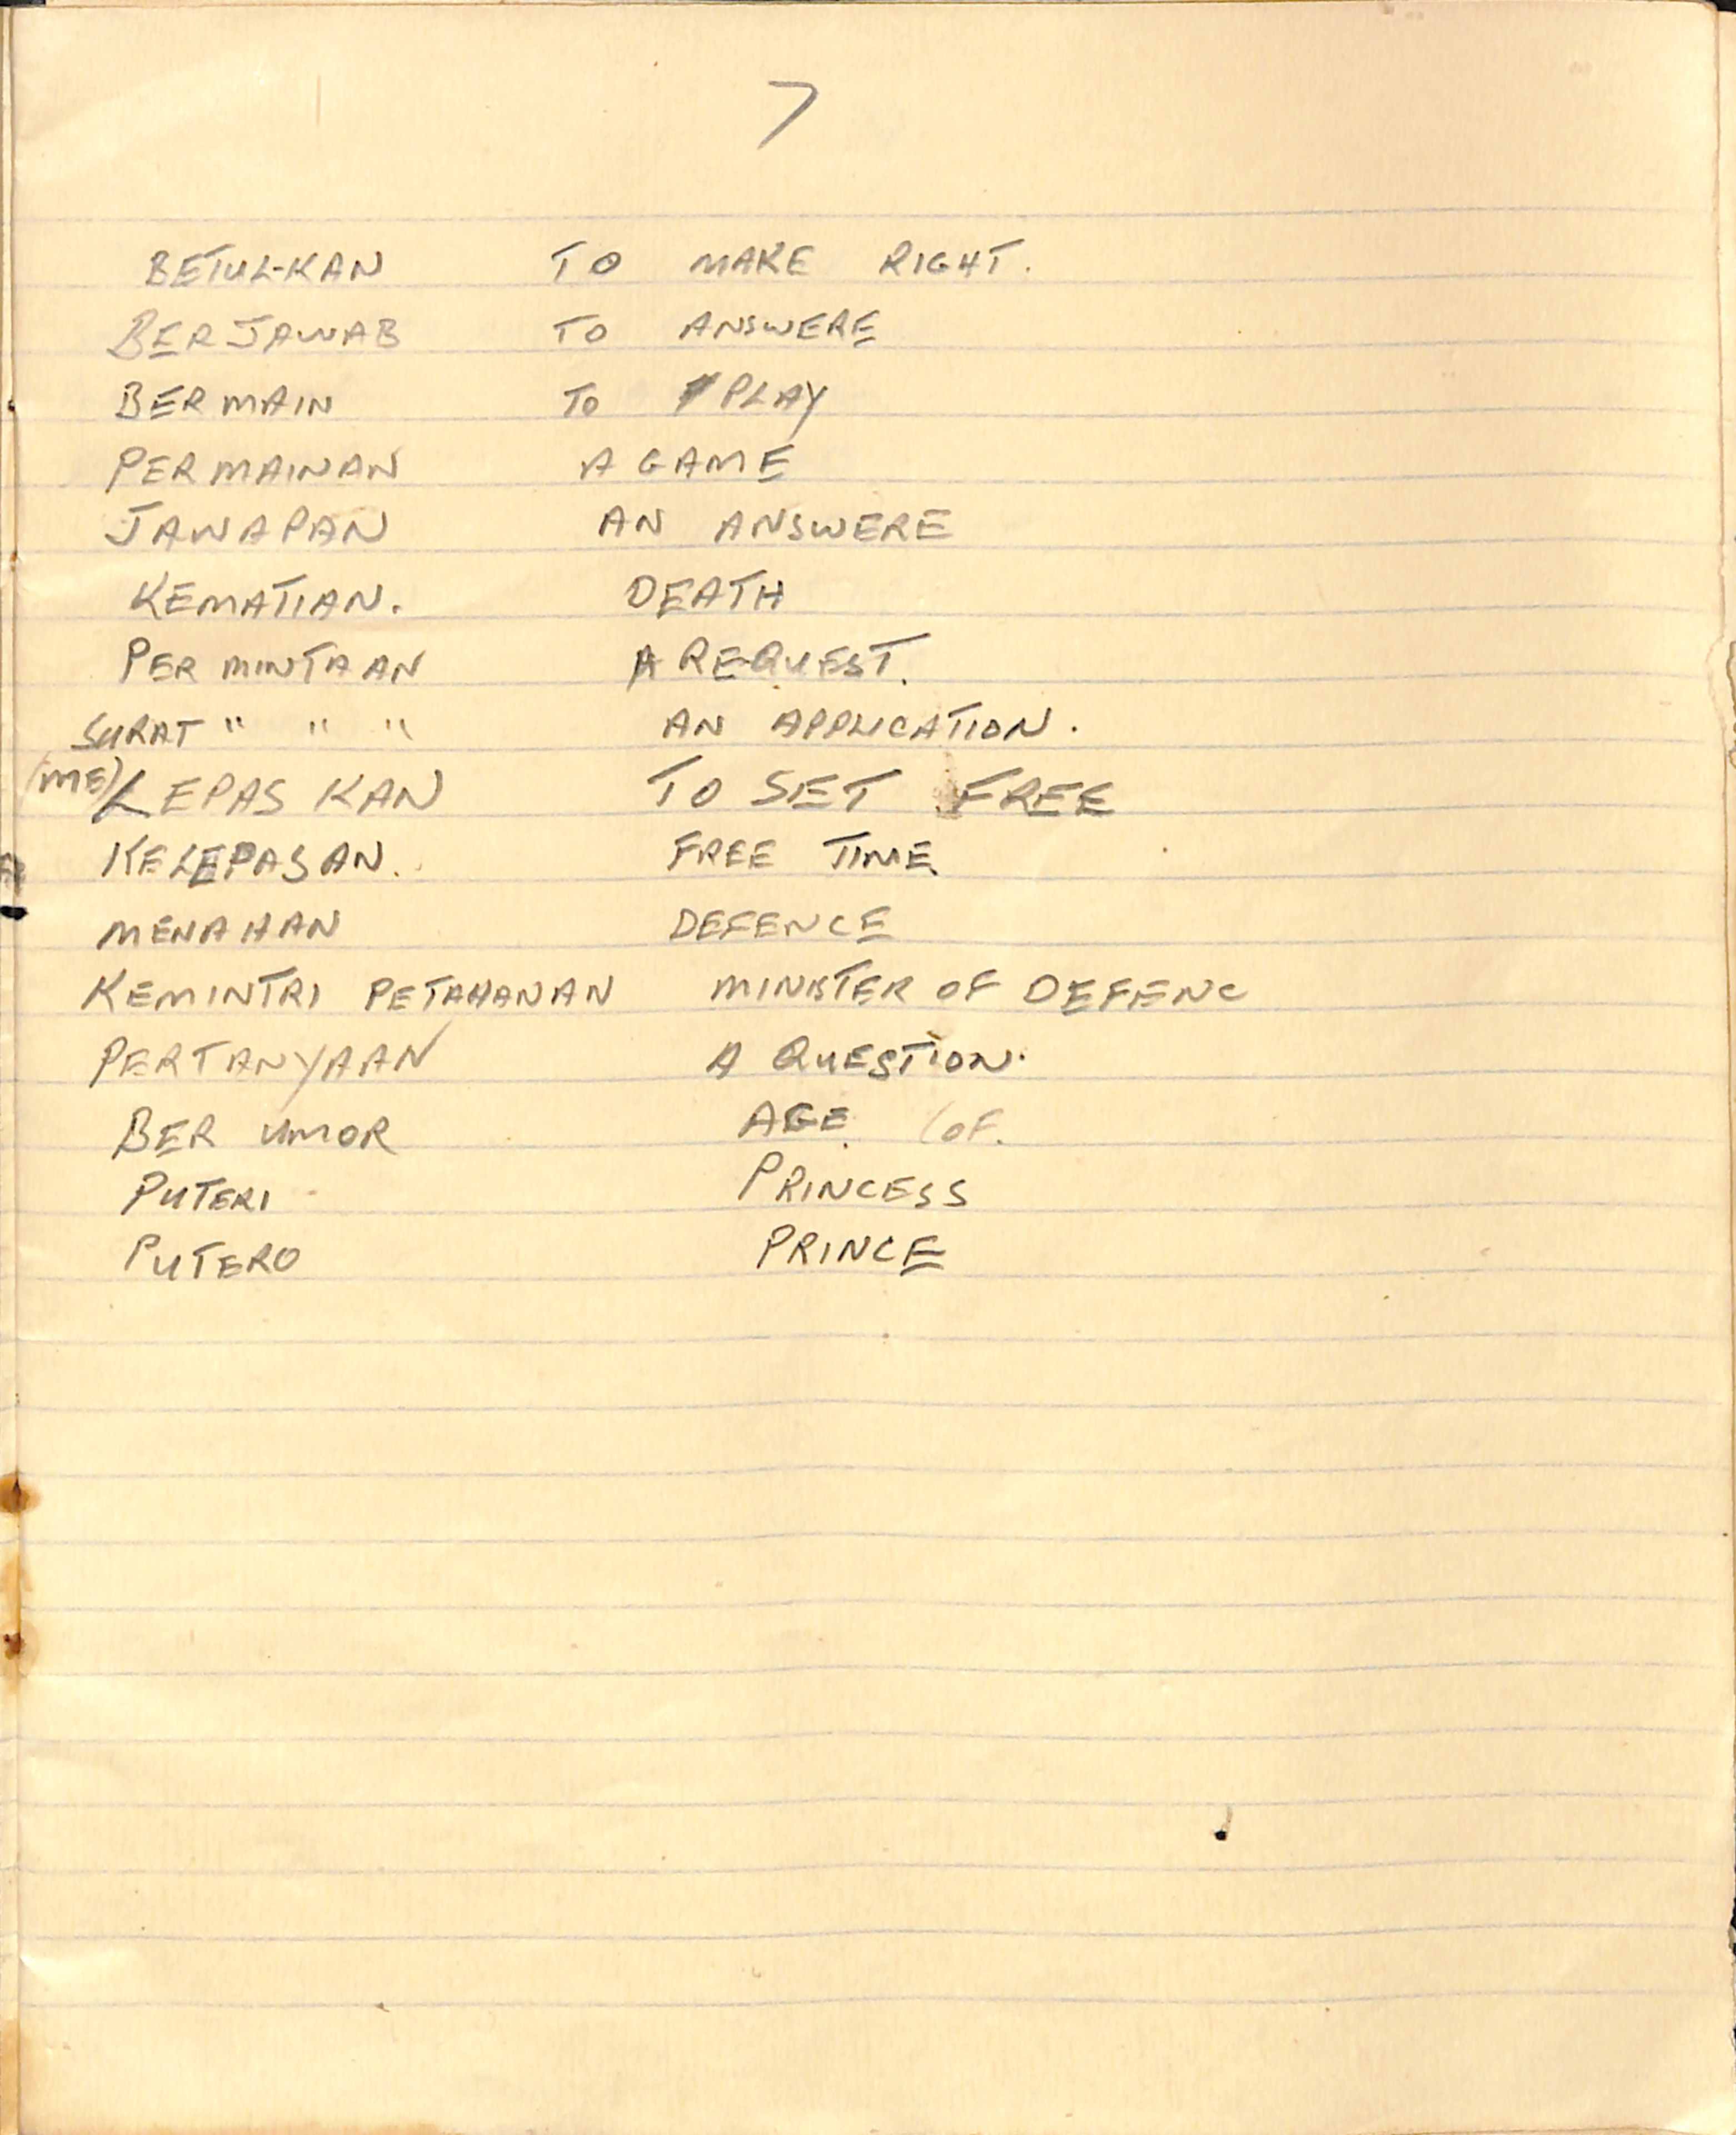 7
BETUL-KAN TO MAKE RIGHT.
BER JAWAB TO ANSWERE
BERMAIN TO PLAY
PERMAINAN A GAME
JAWAPAN AN ANSWERE
KEMATIAN. DEATH
PER MINTAAN A REQUEST.
SURAT " " " AN APPLICATION.
(ME) LEPAS KAN TO SET FREE
KELEPASAN. FREE TIME
MENAHAN DEFENCE
KEMINTRI PETAHANAN MINISTER OF DEFENC
PERTANYAAN A QUESTION.
BER UMOR AGE (OF.
PUTERI PRINCESS
PUTERO PRINCE